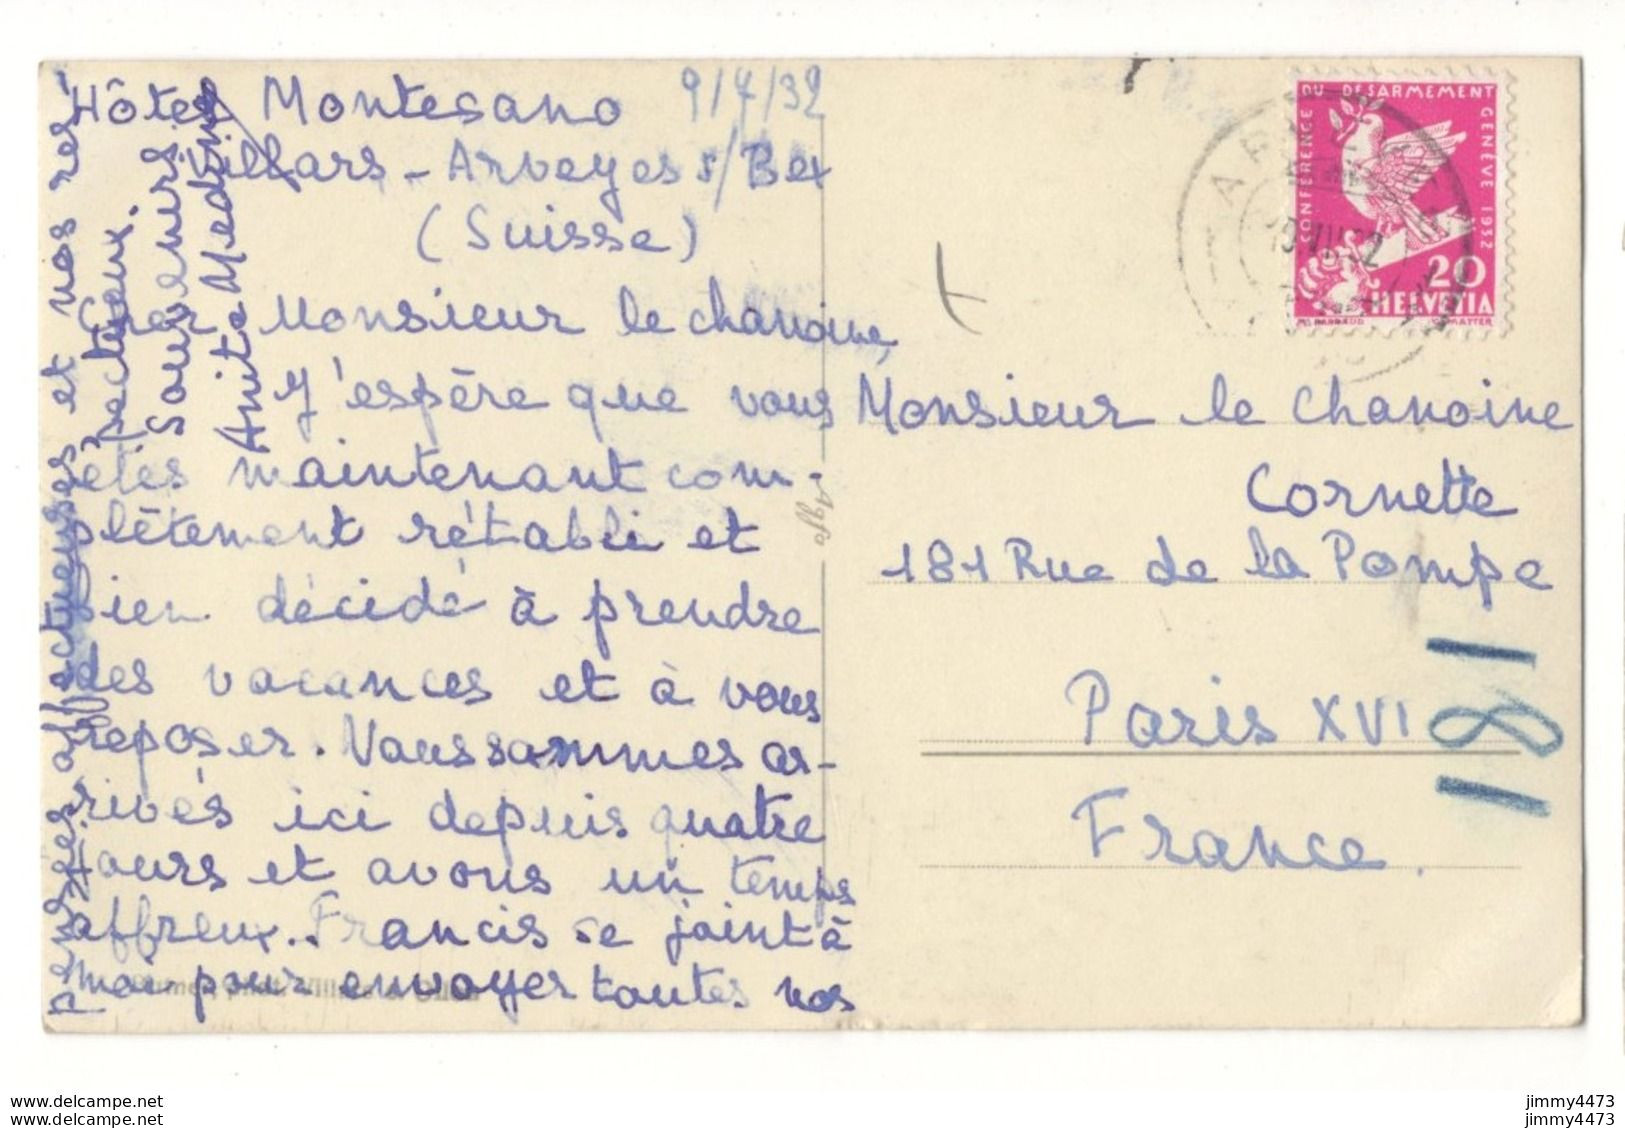 Hôtel Montesano 9/7/32
Villars - Arveyes s/Bex
(Suisse)
Cher Monsieur le chanoine,
J'espère que vous
êtes maintenant com-
plètement rétabli et
bien décidé à prendre
des vacances et à vous
reposer. Nous sommes ar-
rivés ici depuis quatre
jours et avons un temps
affreux. Francis se joint à
moi pour envoyer toutes nos
pensées affectueuses et nos res-
pectueux.
Souvenirs
Anita Medérine
Agfa
CONFERENCE DU DESARMEMENT GENÈVE 1932
20
HELVETIA
Monsieur le chanoine
Cornette
181 Rue de la Pompe
Paris XVI
France.
181
jimmy4473
jimmy4473
www.delcampe.net
www.delcampe.net